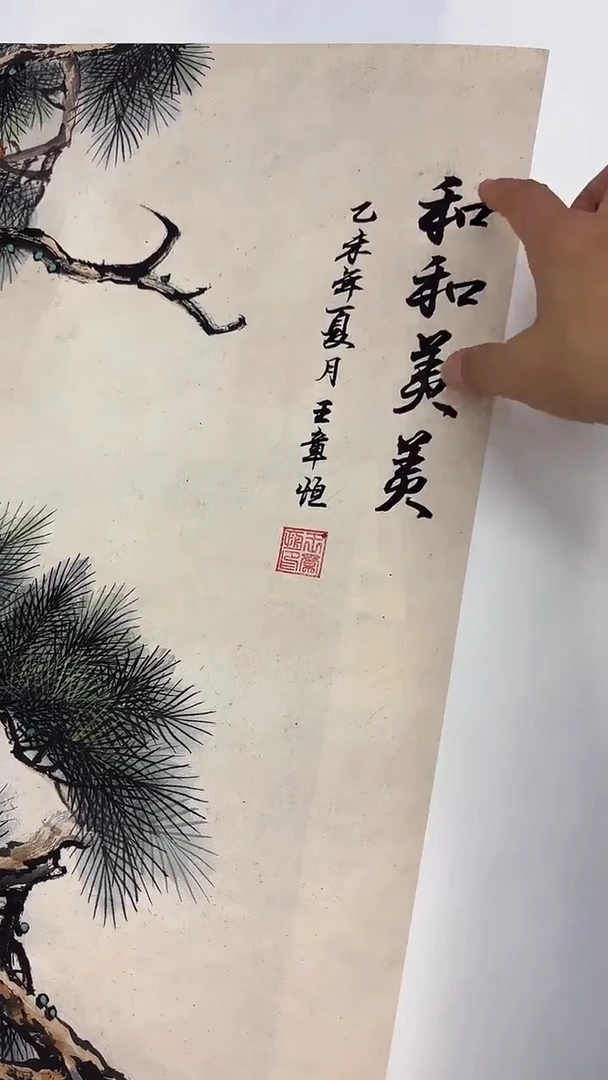 和和美美
乙未年夏月王章恒